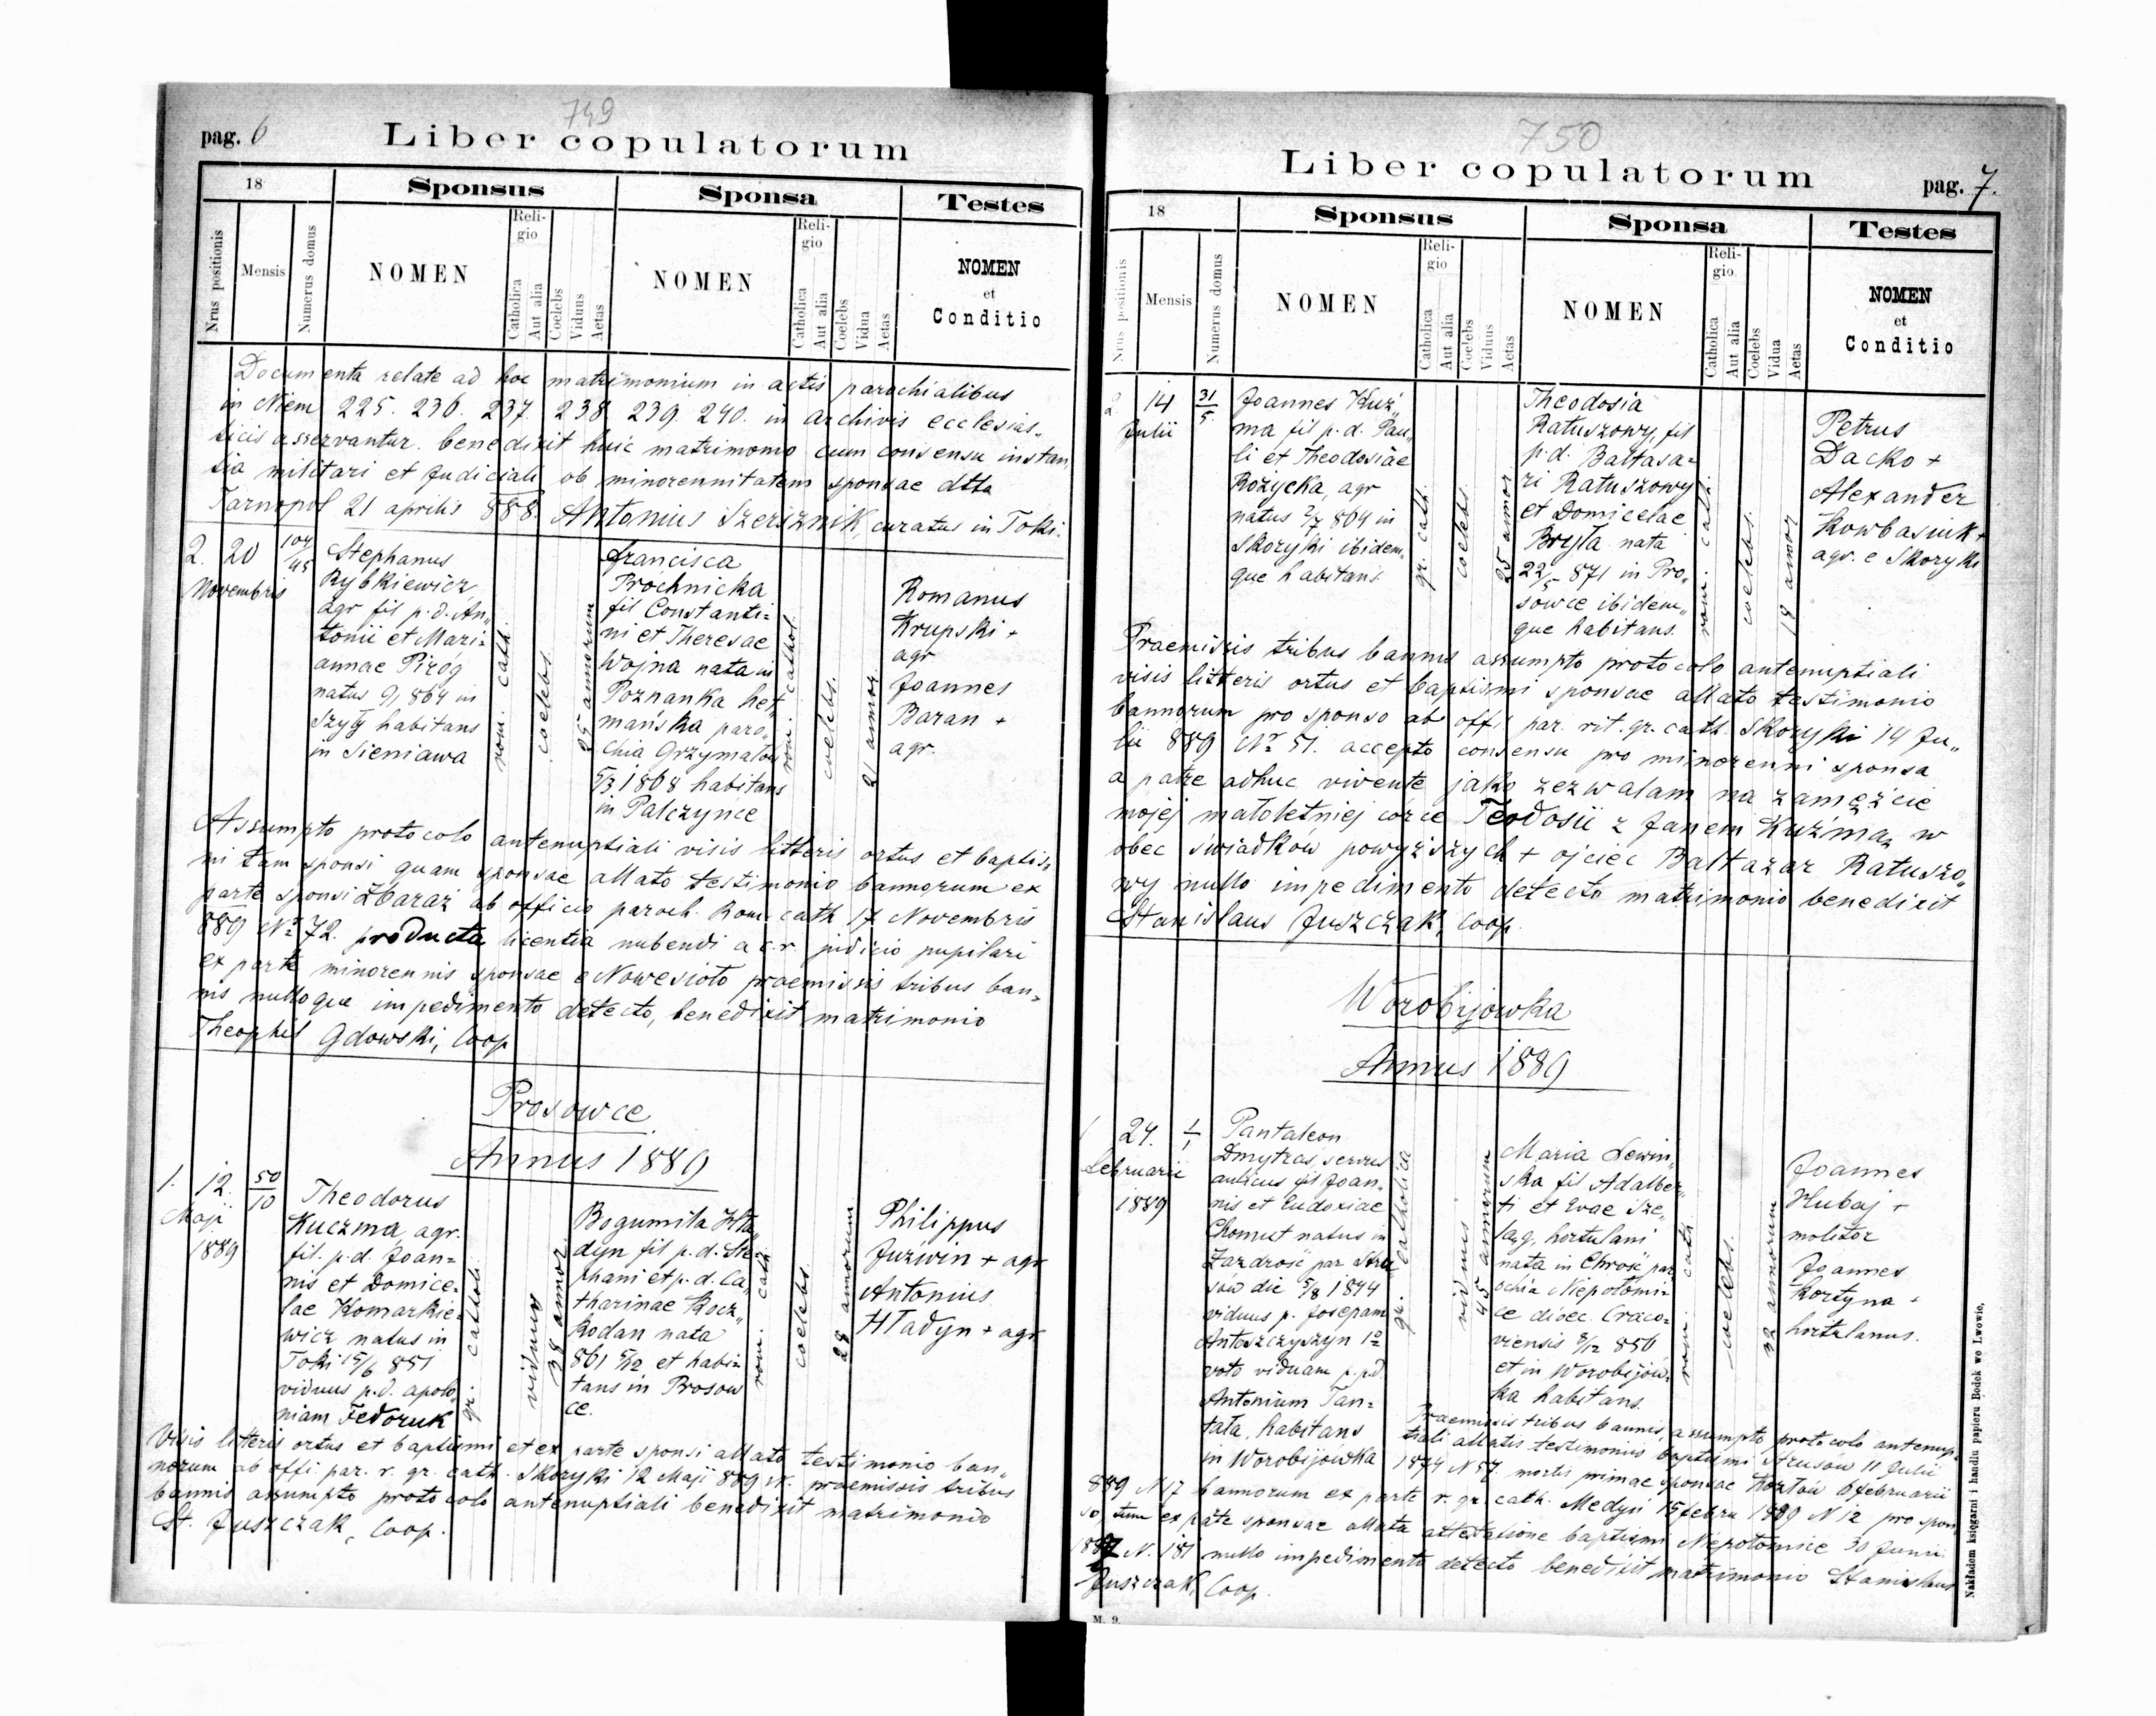 749
pag. 6
Liber copulatorum
18
Sponsus
Sponsa
Testes
Nrus positionis
Mensis
Numerus domus
NOMEN
Reli-
gio
Catholica
Aut alia
Coelebs
Viduus
Aetas
NOMEN
Reli-
gio
Catholica
Aut alia
Coelebs
Vidua
Aetas
NOMEN
et
Conditio
Documenta relate ad hoc matrimonium in actis parochialibus
in Niem 225. 236. 237. 238. 239. 240. in archivis ecclesias„
ticis asservantur. benedixit huic matrimonio cum consensu instan„
tia militari et Judiciali ob minorennitatem sponsae dtto
Tarnopol 21 aprilis 888. Antonius Szersznik, curatus in Toki.
2. 20
Novembris
104/45
Stephanus
Rybkiewicz,
agr fil p. d. An„
tonii et Mari=
annae Pirog
natus 9/1 864 in
Szyły habitans
in Sieniawa
rom. cath.
coelebs.
25 annorum
Francisca
Prochnicka
fil Constanti=
ni et Theresae
Wojna nata in
Poznanka het„
mańska paro„
chia Grzymałów
5/3 1868 habitans
in Palczynce
rom. cathol.
coelebs.
21 annor.
Romanus
Krupski +
agr
Joannes
Baran +
agr.
Assumpto protocolo antenuptiali visis litteris ortus et baptis„
mi tam sponsi quam sponsae allato testimonio bannorum ex
parte sponsi Zbaraż ab officio paroch. Rom. cath 17 Novembris
889 Nr 72. producta licentia nubendi a c. r. judicio pupilari
ex parte minorennis sponsae e Nowesioło praemissis tribus ban„
nis nulloque impedimento detecto, benedixit matrimonio
Theophil Gdowski, Coop
Prosowce
Annus 1889
1. 12.
Maji
1889
50/10
Theodorus
Kuczma, agr.
fil. p. d. Joan=
nis et Domice„
lae Komarkie„
wicz natus in
Toki 15/6 851
viduus p. d. apolo„
niam Fedoruk
gr. cathol.
viduus
38 annor.
Bogumiła Hła„
dyn fil p. d. Ste
phani et p. d. Ca„
tharinae Kocz„
kodan nata
861 5/12 et habi=
tans in Prosow
ce.
rom. cath.
coelebs.
28 annorum
Philippus
Juzwin + agr
Antonius
Hładyn + agr
Visis litteris ortus et baptismi et ex parte sponsi allato testimonio ban„
norum ab offi. par. r. gr. cath. Skoryki 12 Maji 889 praemissis tribus
bannis assumpto protocolo antenuptiali benedixit matrimonio
St. Juszczak, Coop.
750
Liber copulatorum
pag. 7.
18
Sponsus
Sponsa
Testes
Nrus positionis
Mensis
Numerus domus
NOMEN
Reli-
gio
Catholica
Aut alia
Coelebs
Viduus
Aetas
NOMEN
Reli-
gio
Catholica
Aut alia
Coelebs
Vidua
Aetas
NOMEN
et
Conditio
2. 14
Julii
31/5
Joannes Kuź„
ma fil p. d. Pau„
li et Theodosiae
Rożycka, agr
natus 2/7 864 in
Skoryki ibidem„
que habitans.
gr. cath.
coelebs.
25 annor.
Theodosia
Ratuszowy, fil
p. d. Baltasa=
ri Ratuszowy
et Domicelae
Bryła nata
22/5 871 in Pro„
sowce ibidem„
que habitans.
rom. cath.
coelebs.
18 annor
Petrus
Dacko +
Alexander
Kowbasiuk +
agr. e Skoryki
Praemissis tribus bannis assumpto protocolo antenuptiali
visis litteris ortus et baptismi sponsae allato testimonio
bannorum pro sponso ab off. par. rit. gr. cath. Skoryki 14 Ju„
lii 889 Nr 51. accepto consensu pro minorenni sponsa
a patre adhuc vivente jako zezwalam na zamężcie
mojej małoletniej córce Teodosii z Janem Kuźmą w
obec świadków powyższych + ojciec Baltazar Ratuszo„
wy nullo impedimento detecto matrimonio benedixit
Stanislaus Juszczak, Coop.
Worobijowka
Annus 1889
24.
Februarii
1889
1/1
Pantaleon
Dmytras, servus
aulicus fil Joan„
nis et Eudoxiae
Chomut natus in
Zazdrość par Stru„
sów die 5/8 1844
viduus p. Josepam
Antoszczyszyn 1o
voto viduam p. p. d.
Antonium Tan=
tala, habitans
in Worobijówka
gr. catholica
viduus
45 annorum
Maria Lewin„
ska fil Adalber„
ti et Evae Sze„
ląg, hortulani
nata in Chrość par
ochia Niepołomi=
ce dioec. Craco=
viensis 8/12 856
et in Worobijów„
ka habitans.
rom. cath.
coelebs.
32 annorum
Joannes
Hubaj +
molitor
Joannes
Kortyna +
hortulanus.
Praemissis tribus bannis, assumpto protocolo antenup„
tiali allatis testimoniis baptismi Strusów 11 Julii
1874 N 57. mortis primae sponsae Kozłów 6 februarii
889 N 17 bannorum ex parte r. gr. cath. Medyń 15 febru 1889 N 12 pro spon„
so, tum ex parte sponsae allata attestatione baptismi Niepołomice 30 Junii
1887 N. 181 nullo impedimento detecto benedixit matrimonio Stanislaus
Juszczak, Coop.
M. 9.
Nakładem księgarni i handlu papieru Bodek we Lwowie.